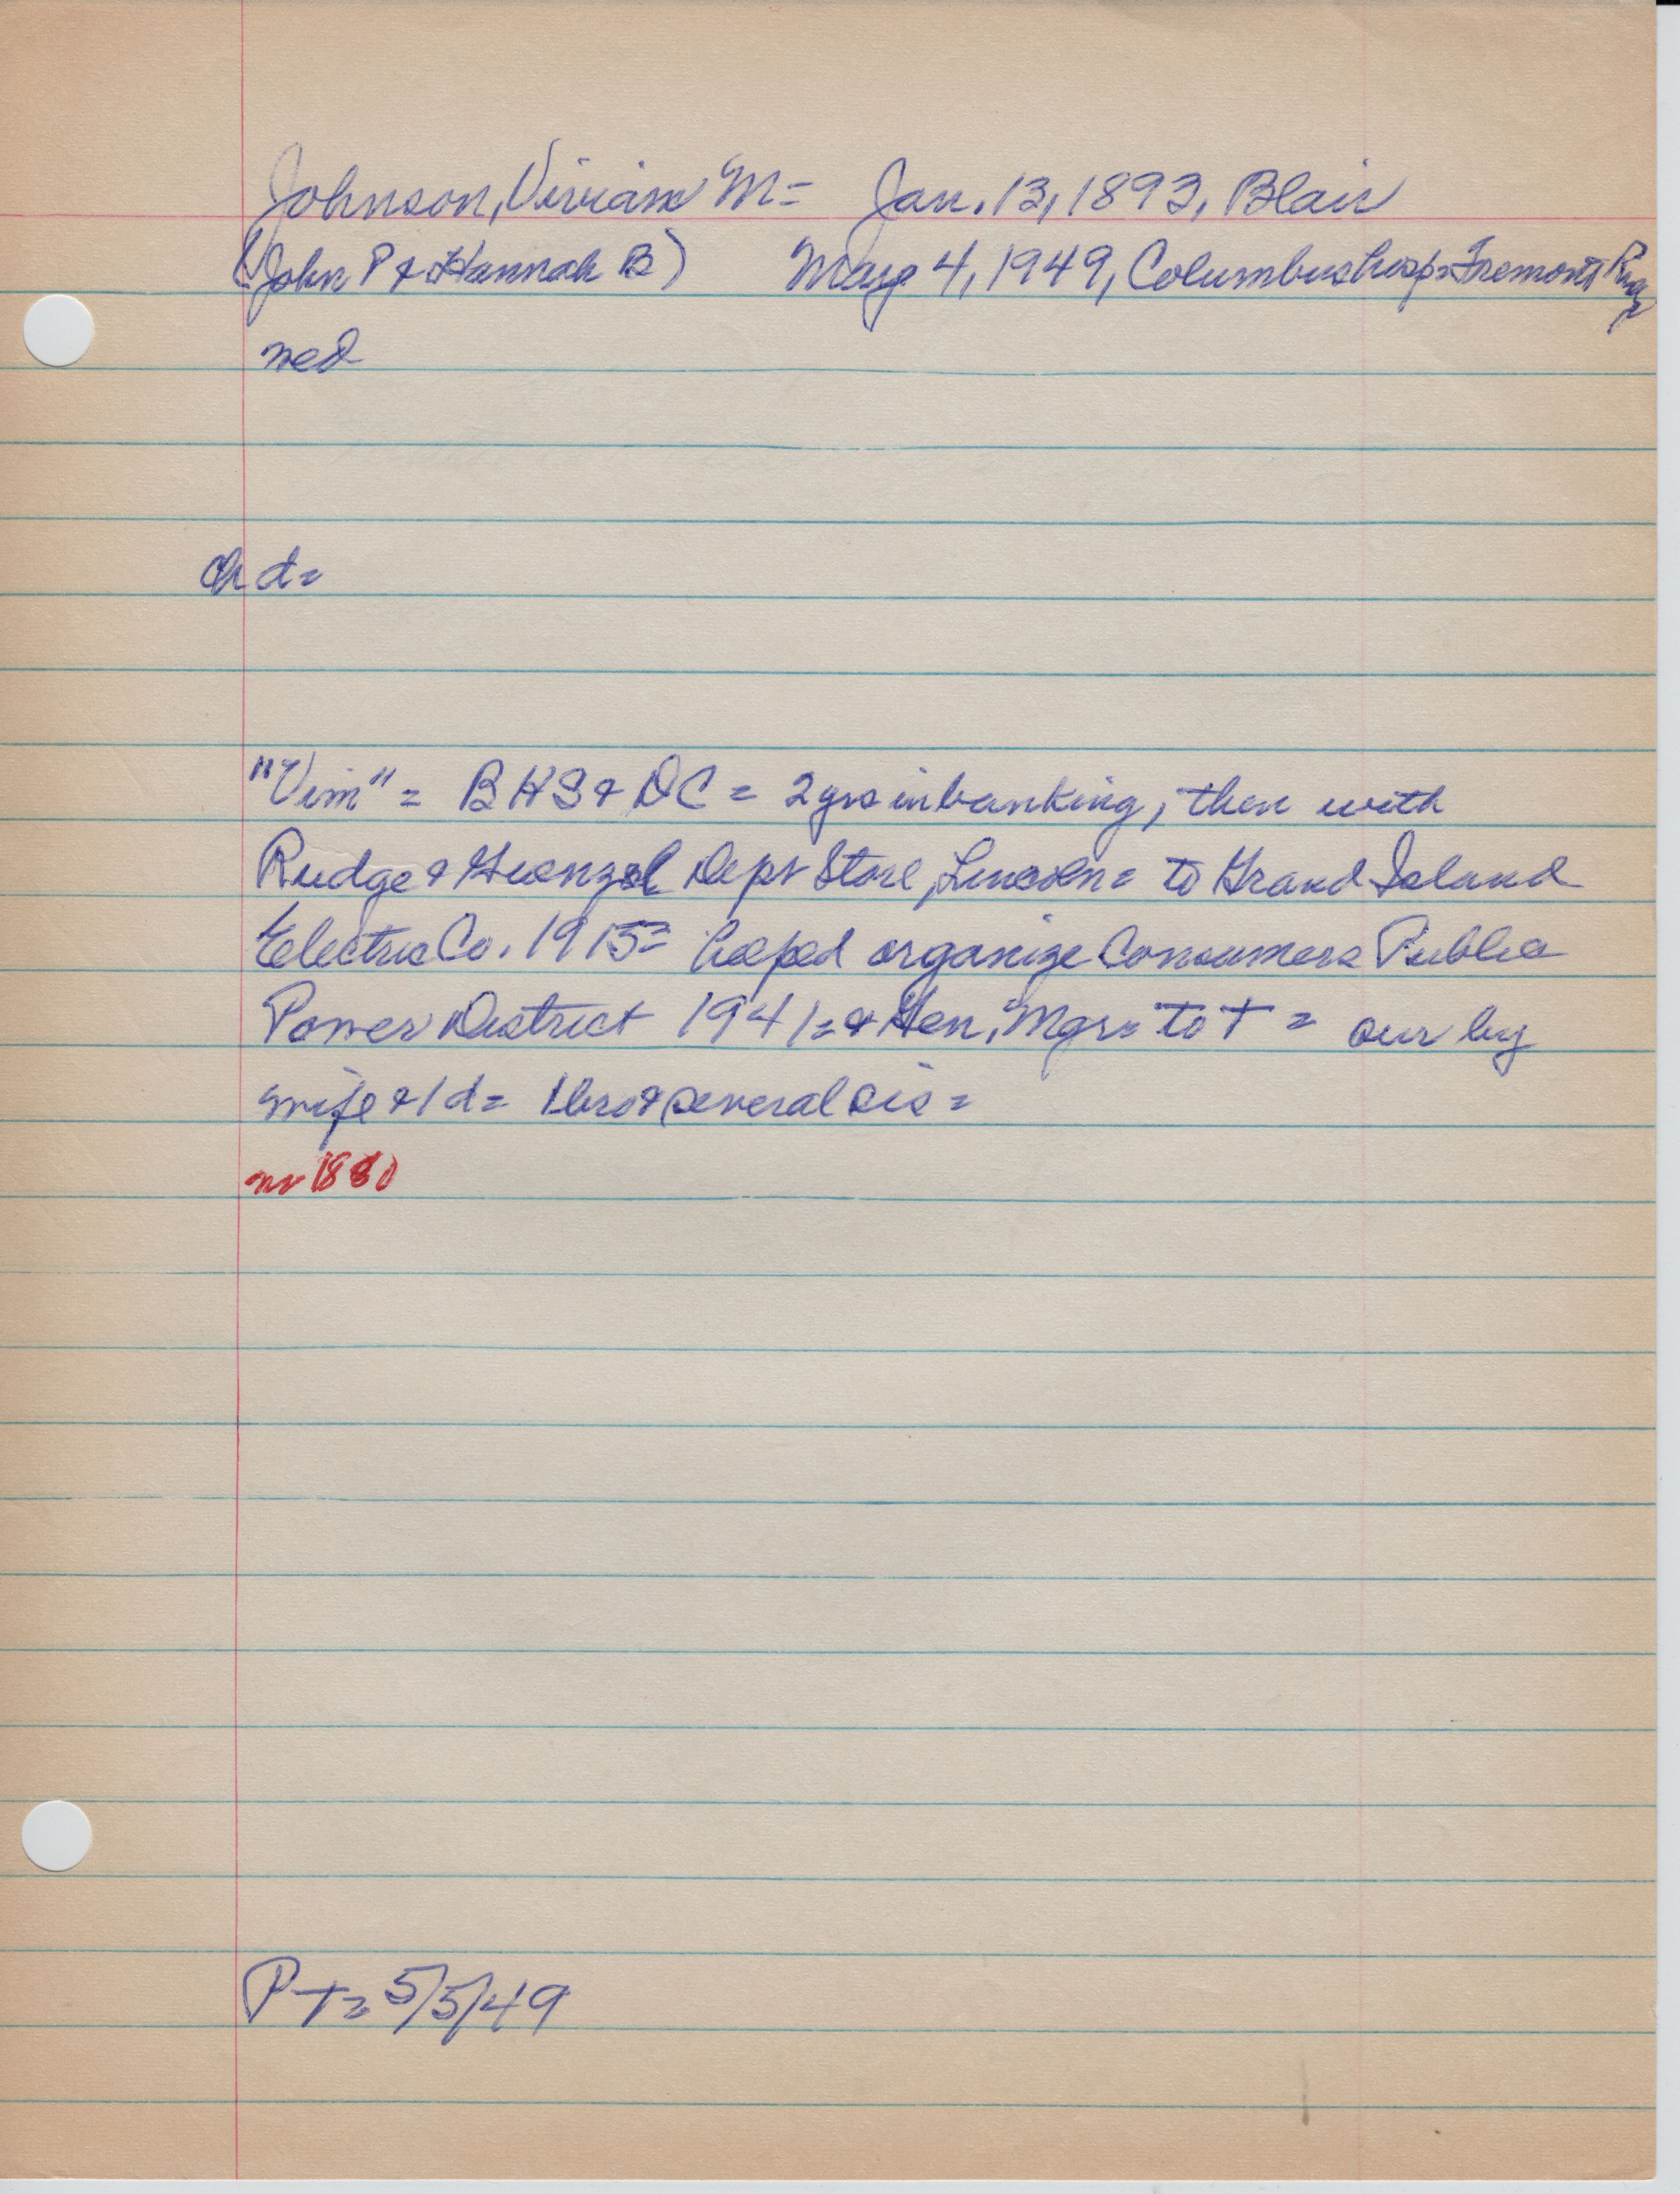 Johnson, Vivian M= Jan. 13, 1893, Blair
(John P & Hannah B) May 4, 1949, Columbus hosp= Fremont
med
Ch d=
"Vim" = BHS & DC = 2 yrs in banking, then with
Rudge & Guenzel Dept Store, Lincoln= to Grand Island
Electric Co. 1915= helped organize Consumers Public
Power District 1941= & Gen. Mgr= to + = sur by
wife & 1 d= 1 bro & several sis=
nr 1880
PT= 5/5/49